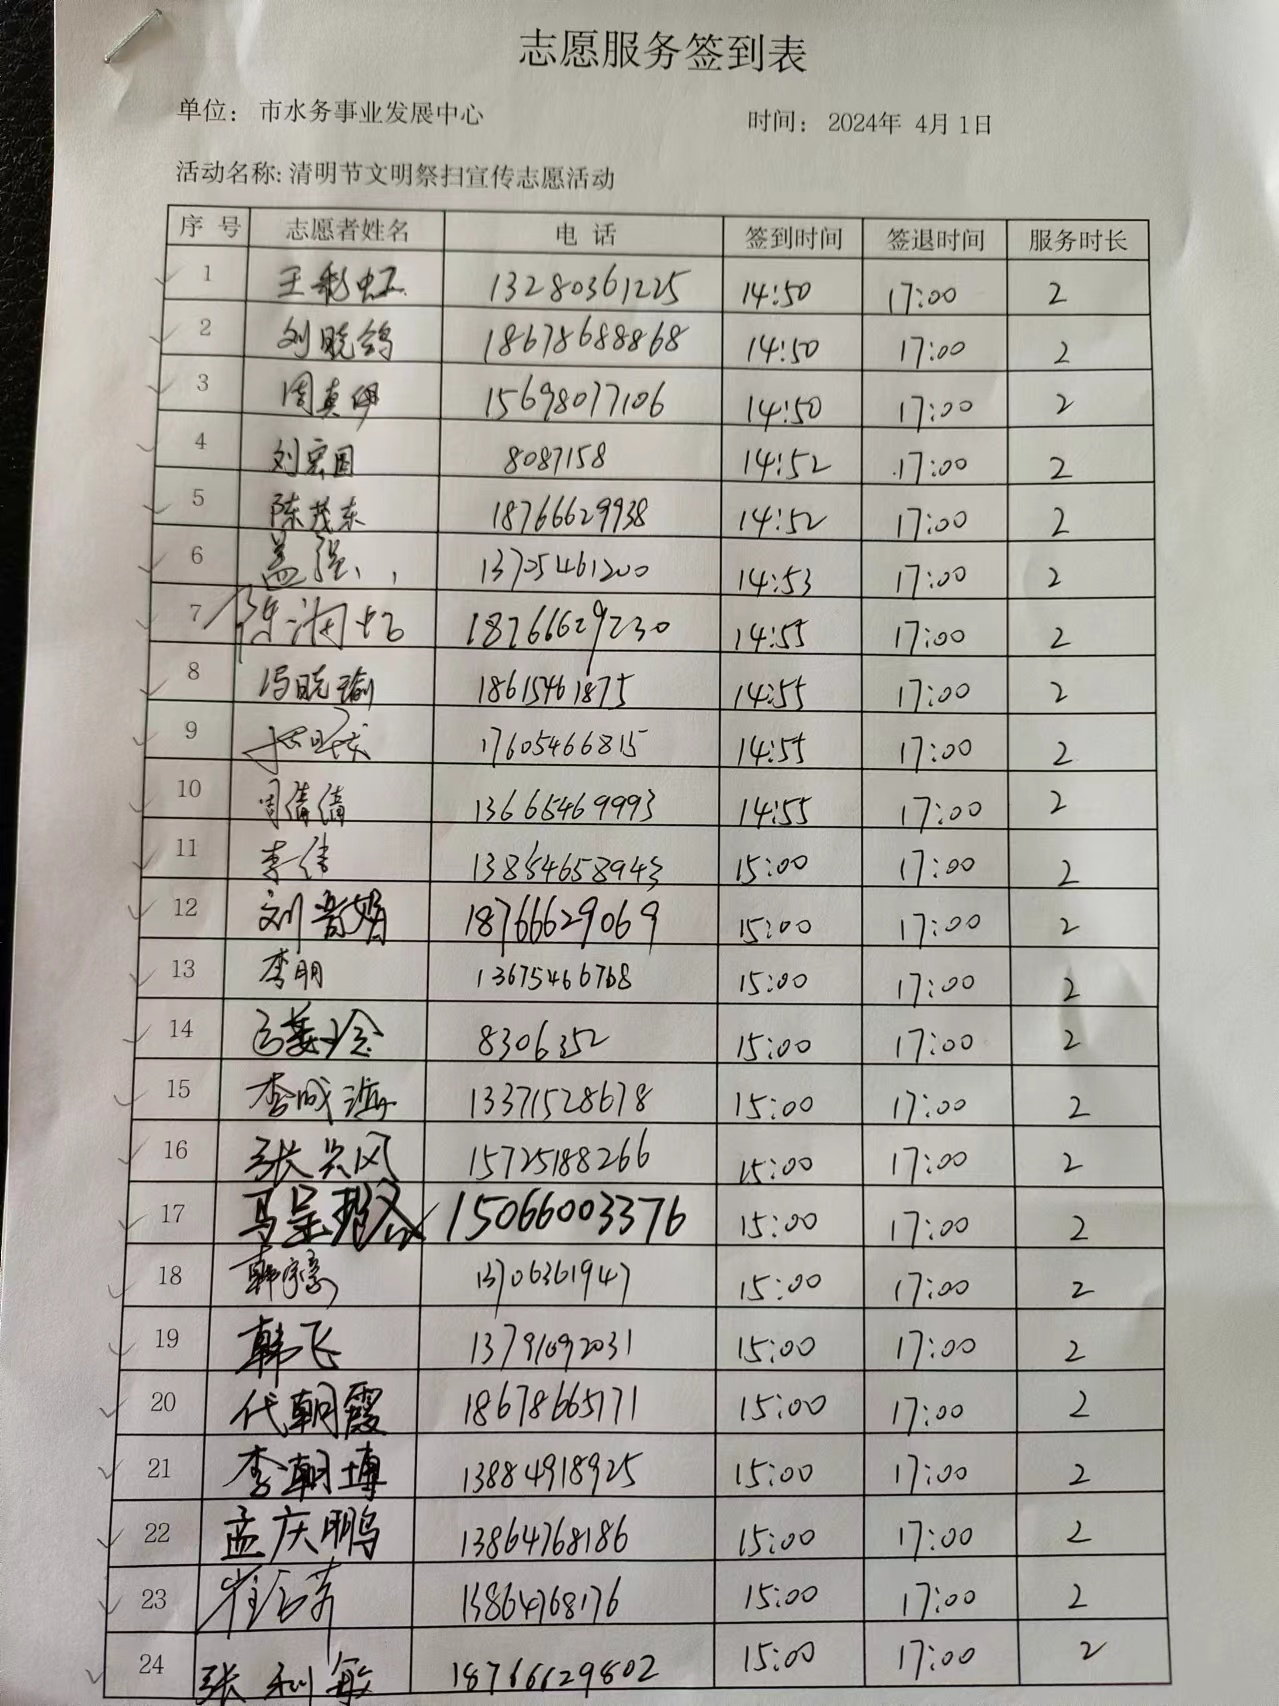 志愿服务签到表
单位： 市水务事业发展中心 时间： 2024年 4月1日
活动名称: 清明节文明祭扫宣传志愿活动
序 号 志愿者姓名 电 话 签到时间 签退时间 服务时长
1 王彩虹 13280361225 14:50 17:00 2
2 刘晓鸽 18678688868 14:50 17:00 2
3 周真 15698077106 14:50 17:00 2
4 刘宏国 8087158 14:52 17:00 2
5 陈茂东 18766629938 14:52 17:00 2
6 盖强 13705461200 14:53 17:00 2
7 18766629230 14:55 17:00 2
8 冯晓瑜 18615461875 14:55 17:00 2
9 17605466815 14:55 17:00 2
10 周倩倩 13665469993 14:55 17:00 2
11 李倩 13854658943 15:00 17:00 2
12 刘 娟 18766629069 15:00 17:00 2
13 李明 13675466768 15:00 17:00 2
14 8306352 15:00 17:00 2
15 李成海 13371528678 15:00 17:00 2
16 张兴风 15725188266 15:00 17:00 2
17 马呈 15066003376 15:00 17:00 2
18 韩 13706361947 15:00 17:00 2
19 韩飞 13791092031 15:00 17:00 2
20 代朝霞 18678665171 15:00 17:00 2
21 李潮博 13884918925 15:00 17:00 2
22 孟庆鹏 13864768186 15:00 17:00 2
23 崔 13864768176 15:00 17:00 2
24 张利敏 18766629802 15:00 17:00 2